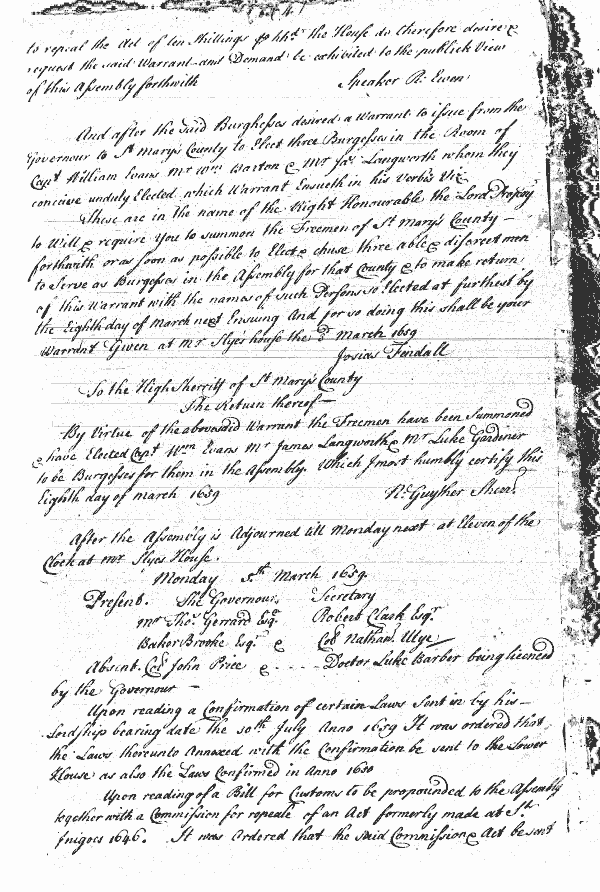 to repeal the Act of ten Shillings p hhd the House do therefore desire &
request the said Warrant and Demand be exhibited to the publick View
of this Assembly forthwith Speaker R: Ewen
And after the said Burghesses desired a Warrant to issue from the
Governour to St Marys County to Elect three Burgesses in the Room of
Capt William Evans Mr Wm Barton & Mr Jas Langworth whom they
conceive unduly Elected which Warrant Ensueth in his Verbis Viz
These are in the name of the Right Honourable the Lord Propry
to Will & require You to summon the Freemen of St Marys County —
forthwith or as soon as possible to Elect & chuse three able & discreet men
to Serve as Burgesses in the Assembly for that County & to make return
of this Warrant with the names of such Persons so Elected at furthest by
the Eighth day of March next Ensuing And for so doing this shall be your
Warrant Given at Mr Slyes house the 3d March 1659
Josias Fendall
To the High Sherriff of St Marys County
The Return thereof —
By Virtue of the abovesaid Warrant the Freemen have been Summoned
& have Elected Capt Wm Evans Mr James Langworth & Mr Luke Gardiner
to be Burgesses for them in the Assembly Which I most humbly certify this
Eighth day of march 1659 Ni: Guyther Sheri:
After the Assembly is Adjourned till Monday next at Eleven of the
Clock at mr Slyes House.
Monday 5th March 1659.
Present. The Governour. Secretary
Mr Tho: Gerrard Esqr Robert Clark Esqr
Baker Brooke Esqr & Col Nathan: Utye
Absent. Col John Price & .... Doctor Luke Barber being licened
by the Governour —
Upon reading a Confirmation of certain Laws sent in by his —
Lordship bearing date the 10th July Anno 1659 It was ordered that
the Laws thereunto Annexed with the Confirmation be sent to the Lower
House as also the Laws Confirmed in Anno 1650
Upon reading of a Bill for Customs to be propounded to the Assembly
together with a Commission for repeale of an Act formerly made at St
Inigoes 1646. It was Ordered that the said Commission & Act be sent